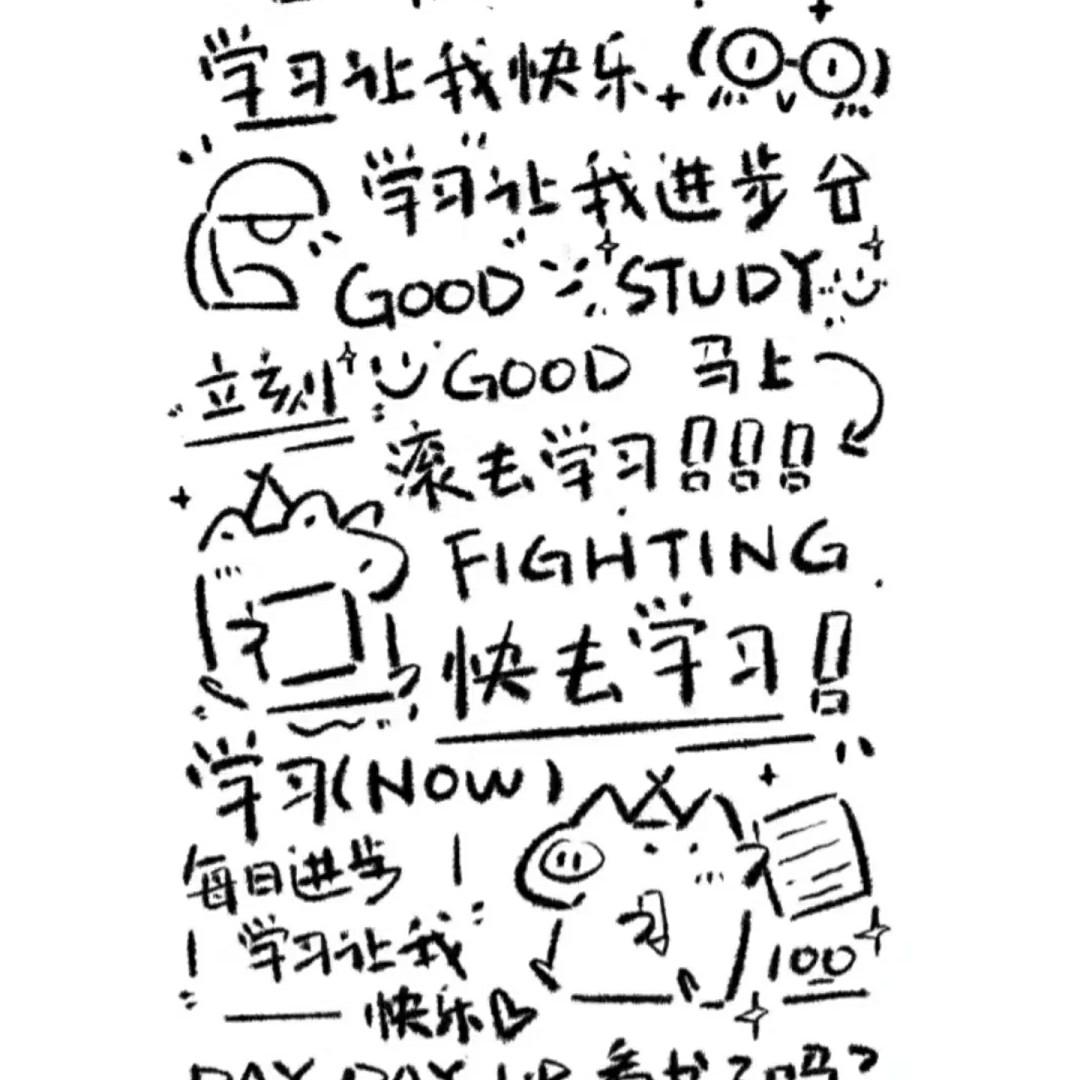 学习让我快乐
学习让我进步
GOOD STUDY
立刻 GOOD 马上
滚去学习!!!
FIGHTING
快去学习!
学习(NOW)
每日进步!
!学习让我
快乐
100
DAY DAY UP 看书了吗?